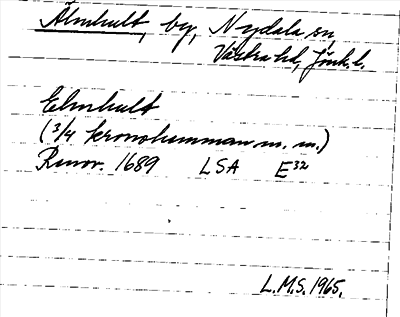 Älmhult, by, Nydala sn,
Västra hd, Jönk. l.
Elmhult
(3/4 kronohemman m. m.)
Renov. 1689 LSA E³²
L.M.S. 1965.